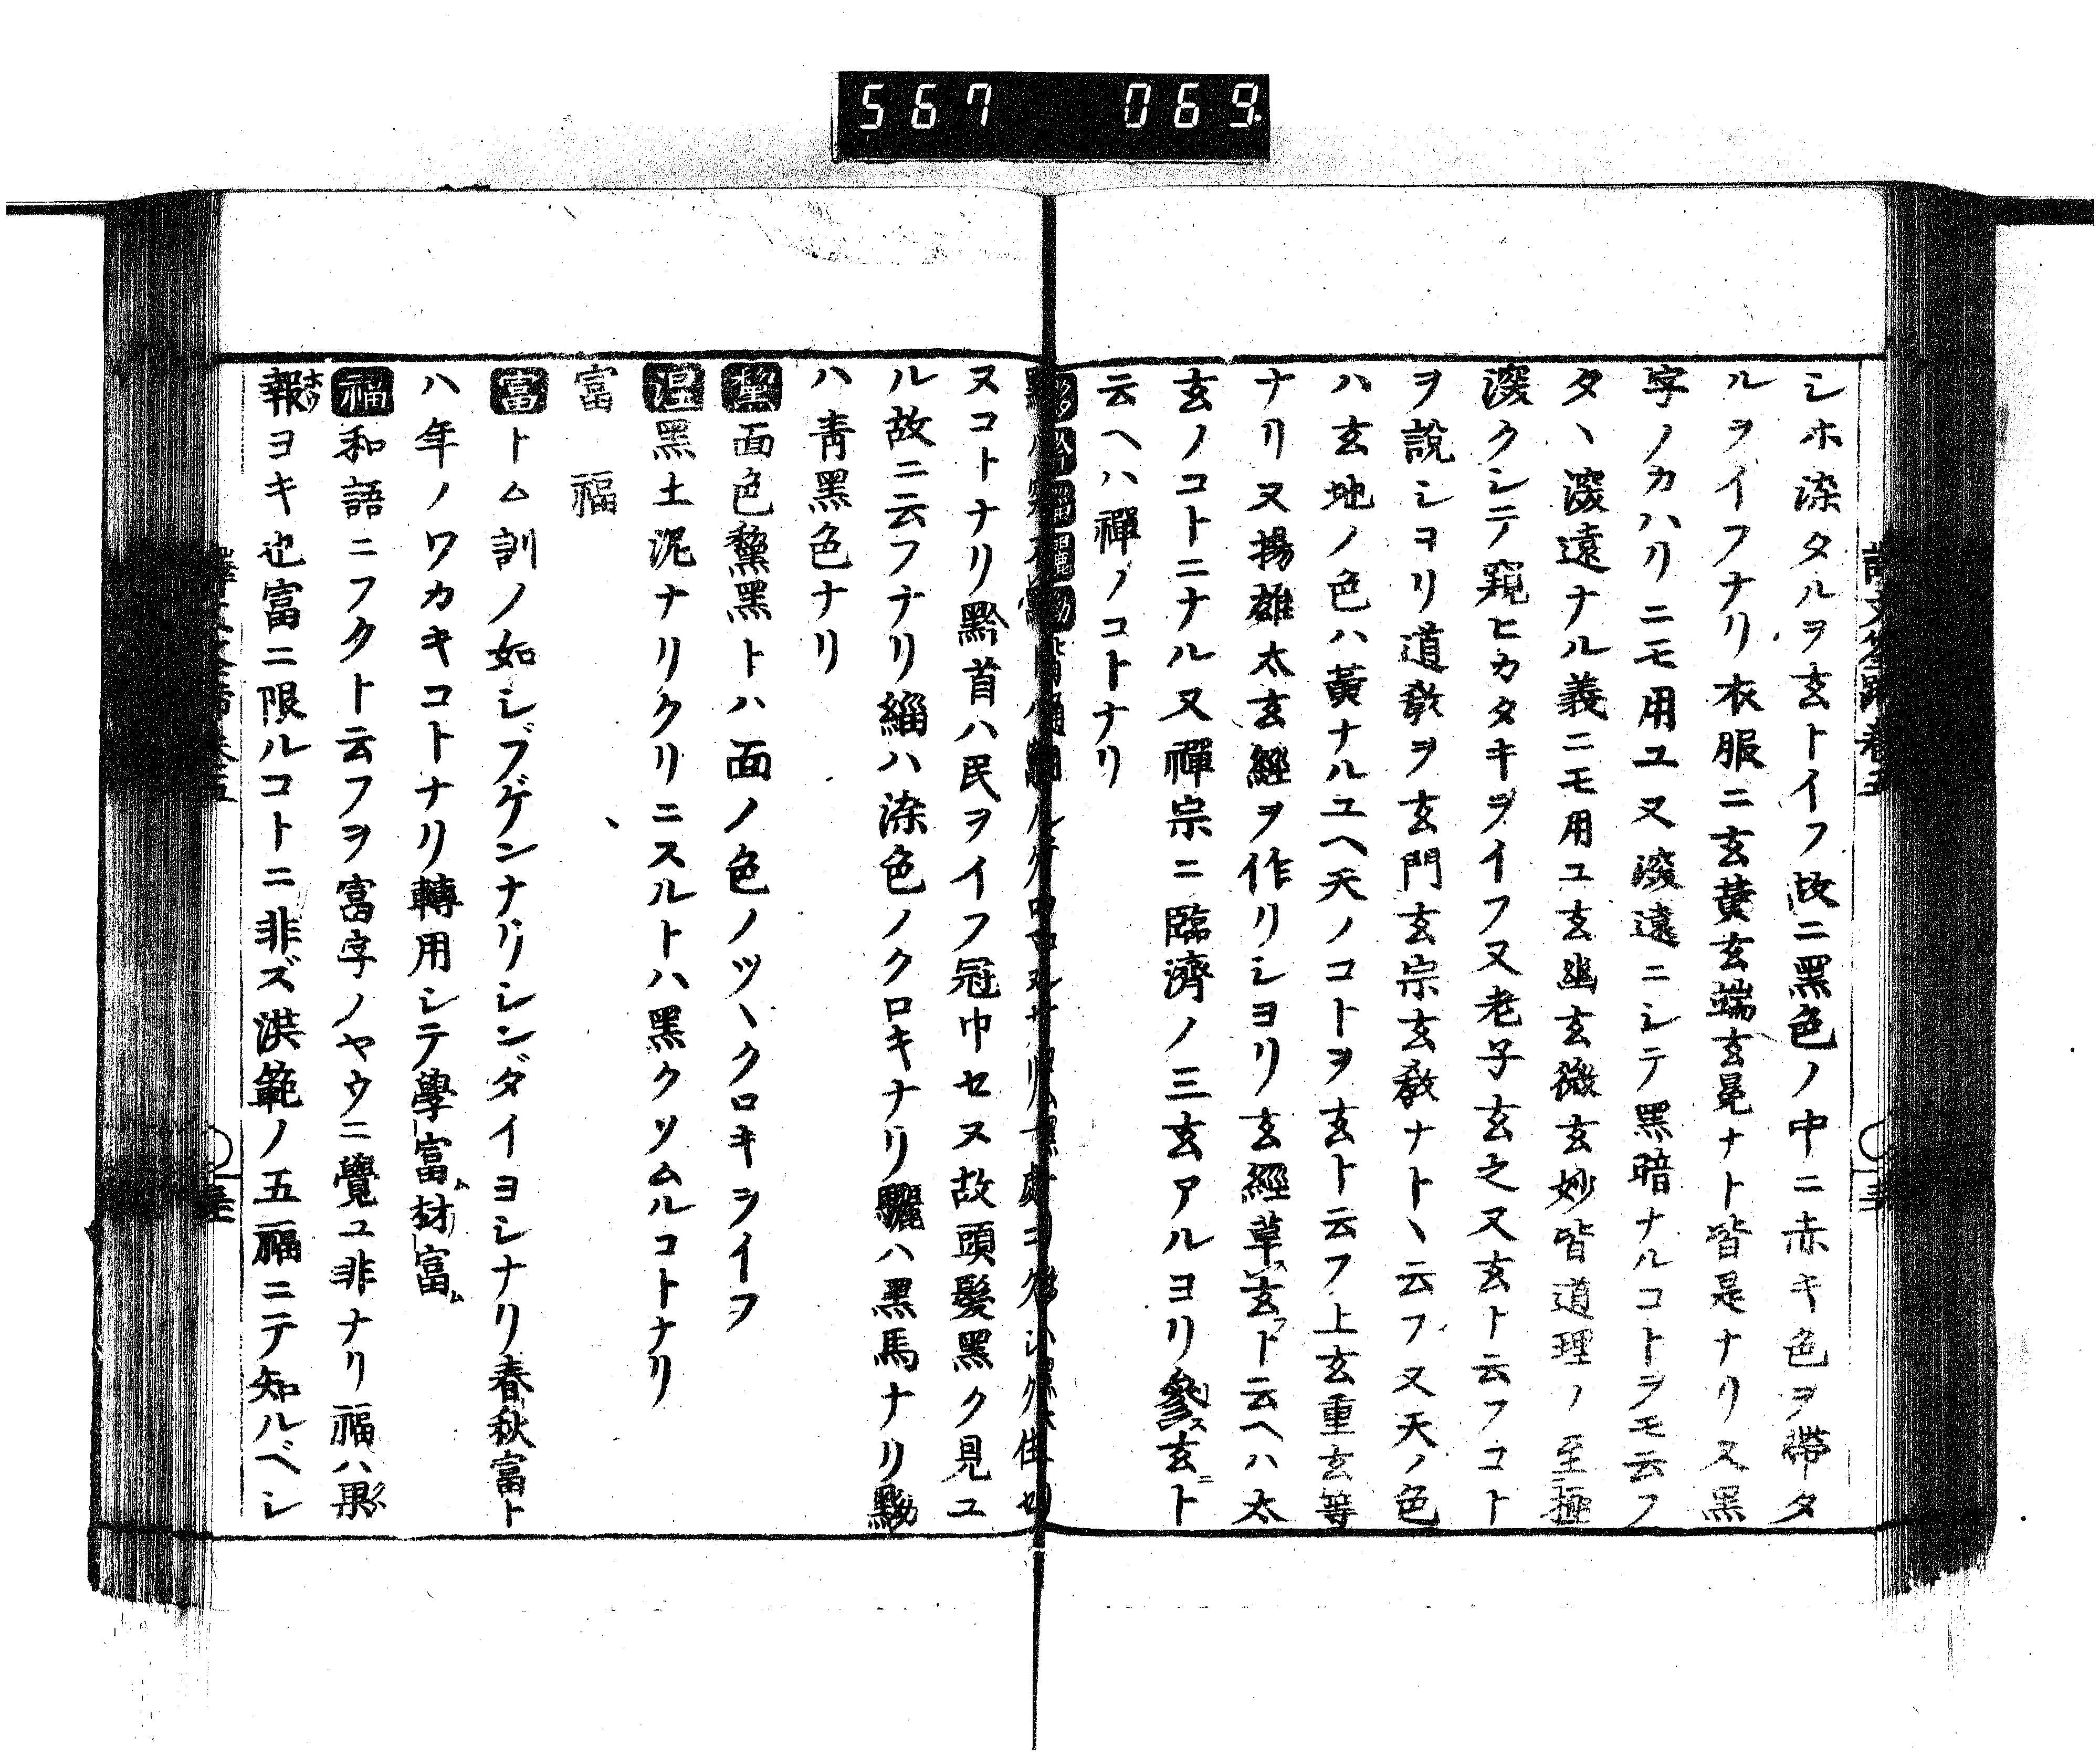 567 069
シホ深タルヲ玄トイフ故ニ黑色ノ中ニ赤キ色ヲ帶タ
ルヲイフナリ衣服ニ玄黄玄端玄冕ナト皆是ナリ又黑
字ノカハリニモ用ユ又深遠ニシテ黑暗ナルコトラモ云フ
タヽ深遠ナル義ニモ用ユ玄幽玄微玄妙皆道理ノ至極
深クシテ窺ヒカタキヲイフ又老子玄之又玄ト云フコト
ヲ說シヨリ道教ヲ玄門玄宗玄教ナトヽ云フ又天ノ色
ハ玄地ノ色ハ黃ナルユヘ天ノコトヲ玄ト云フ上玄重玄等
ナリ又揚雄太玄經ヲ作リシヨリ玄經草玄ト云ヘハ太
玄ノコトニナル又禪宗ニ臨濟ノ三玄アルヨリ參玄ト
云ヘハ禪ノコトナリ
ヌコトナリ黔首ハ民ヲイフ冠巾セヌ故頭髮黑ク見ユ
ル故ニ云フナリ緇ハ染色ノクロキナリ驪ハ黑馬ナリ黝
ハ青黑色ナリ
黧面色黧黑トハ面ノ色ノツヽクロキヲイフ
涅黑土泥ナリクリニスルトハ黑クソムルコトナリ
富 福
富トム訓ノ如シブゲンナリシンダイヨシナリ春秋富ト
ハ年ノワカキコトナリ轉用シテ學富材富
福和語ニフクト云フヲ富字ノヤウニ覺ユ非ナリ福ハ果
報ヨキ也富ニ限ルコトニ非ズ洪範ノ五福ニテ知ルベシ